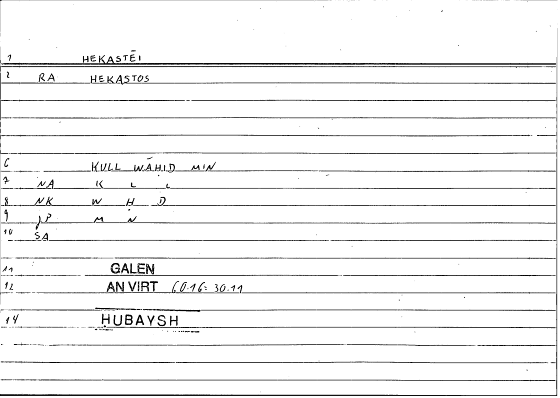 1 HEKASTĒI
2 RA HEKASTOS
6 KULL WĀḤID MIN
7 NA K L L
8 NK W Ḥ D
9 JP M N
10 SA
11 GALEN
12 AN VIRT 60.16: 30.11
14 ḤUBAYSH